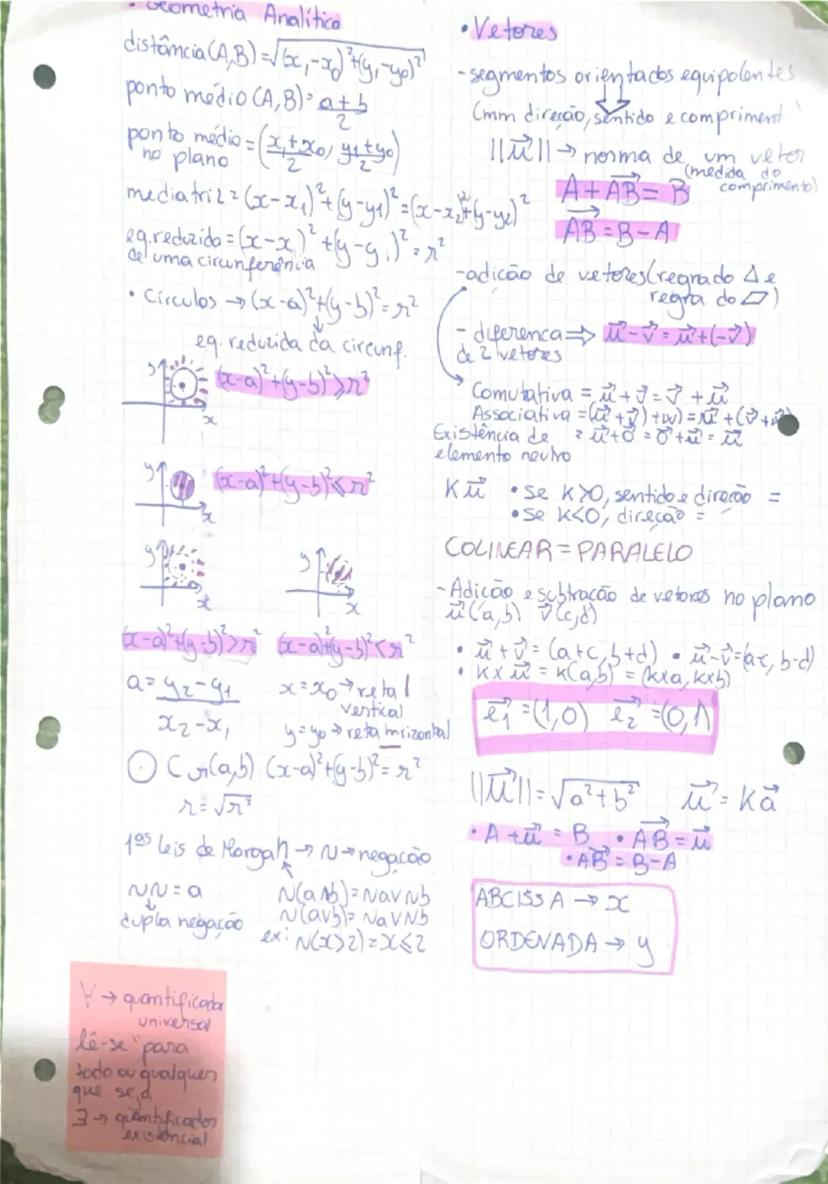 • Geometria Analítica
distância (A,B) = √(x₁-x₀)²+(y₁-y₀)²
ponto médio (A,B) = a+b/2
ponto médio no plano = (x₁+x₀/2, y₁+y₀/2)
mediatriz = (x-x₁)²+(y-y₁)² = (x-x₂)²+(y-y₂)²
eq. reduzida = (x-x₁)²+(y-y₁)² = r²
de uma circunferência
• Círculos → (x-a)²+(y-b)² = r²
↓
eq. reduzida da circunf.
y (x-a)²+(y-b)² ≥ r²
x
y (x-a)²+(y-b)² ≤ r²
x
y y
x x
(x-a)²+(y-b)² > r² (x-a)²+(y-b)² < r²
a = y₂-y₁ x = x₀ → reta
x₂-x₁ vertical
y = y₀ → reta horizontal
C r (a,b) (x-a)²+(y-b)² = r²
r = √r²
1ªs leis de Morgan → ~ → negação
~~ = a ~(a∧b) = ~a∨~b
↓ ~(a∨b) = ~a∨~b
dupla negação ex: ~(x>2) = x≤2
∀ → quantificador
universal
lê-se "para
todo ou qualquer
que seja
∃ → quantificador
existencial
• Vetores
- segmentos orientados equipolentes
(mm direção, sentido e compriment
||u⃗|| → norma de um vetor
(medida do
comprimento)
A + AB⃗ = B
AB⃗ = B - A
- adição de vetores (regra do △ e
regra do ▱)
- diferença ⇒ u⃗ - v⃗ = u⃗ + (-v⃗)
de 2 vetores
Comutativa = u⃗ + v⃗ = v⃗ + u⃗
Associativa = (u⃗ + v⃗) + w) = u⃗ + (v⃗ +
Existência de = u⃗ + 0⃗ = 0⃗ + u⃗ = u⃗
elemento neutro
K u⃗ • Se K>0, sentido e direção =
• Se K<0, direção =
COLINEAR = PARALELO
- Adição e subtração de vetores no plano
u⃗(a,b) v⃗(c,d)
• u⃗ + v⃗ = (a+c, b+d) • u⃗ - v⃗ = (a-c, b-d)
• K × u⃗ = K(a,b) = (K×a, K×b)
e₁⃗ = (1,0) e₂⃗ = (0,1)
||u⃗|| = √a²+b² u⃗ = K a⃗
• A + u⃗ = B • AB⃗ = u⃗
• AB⃗ = B - A
ABCISSA → x
ORDENADA → y